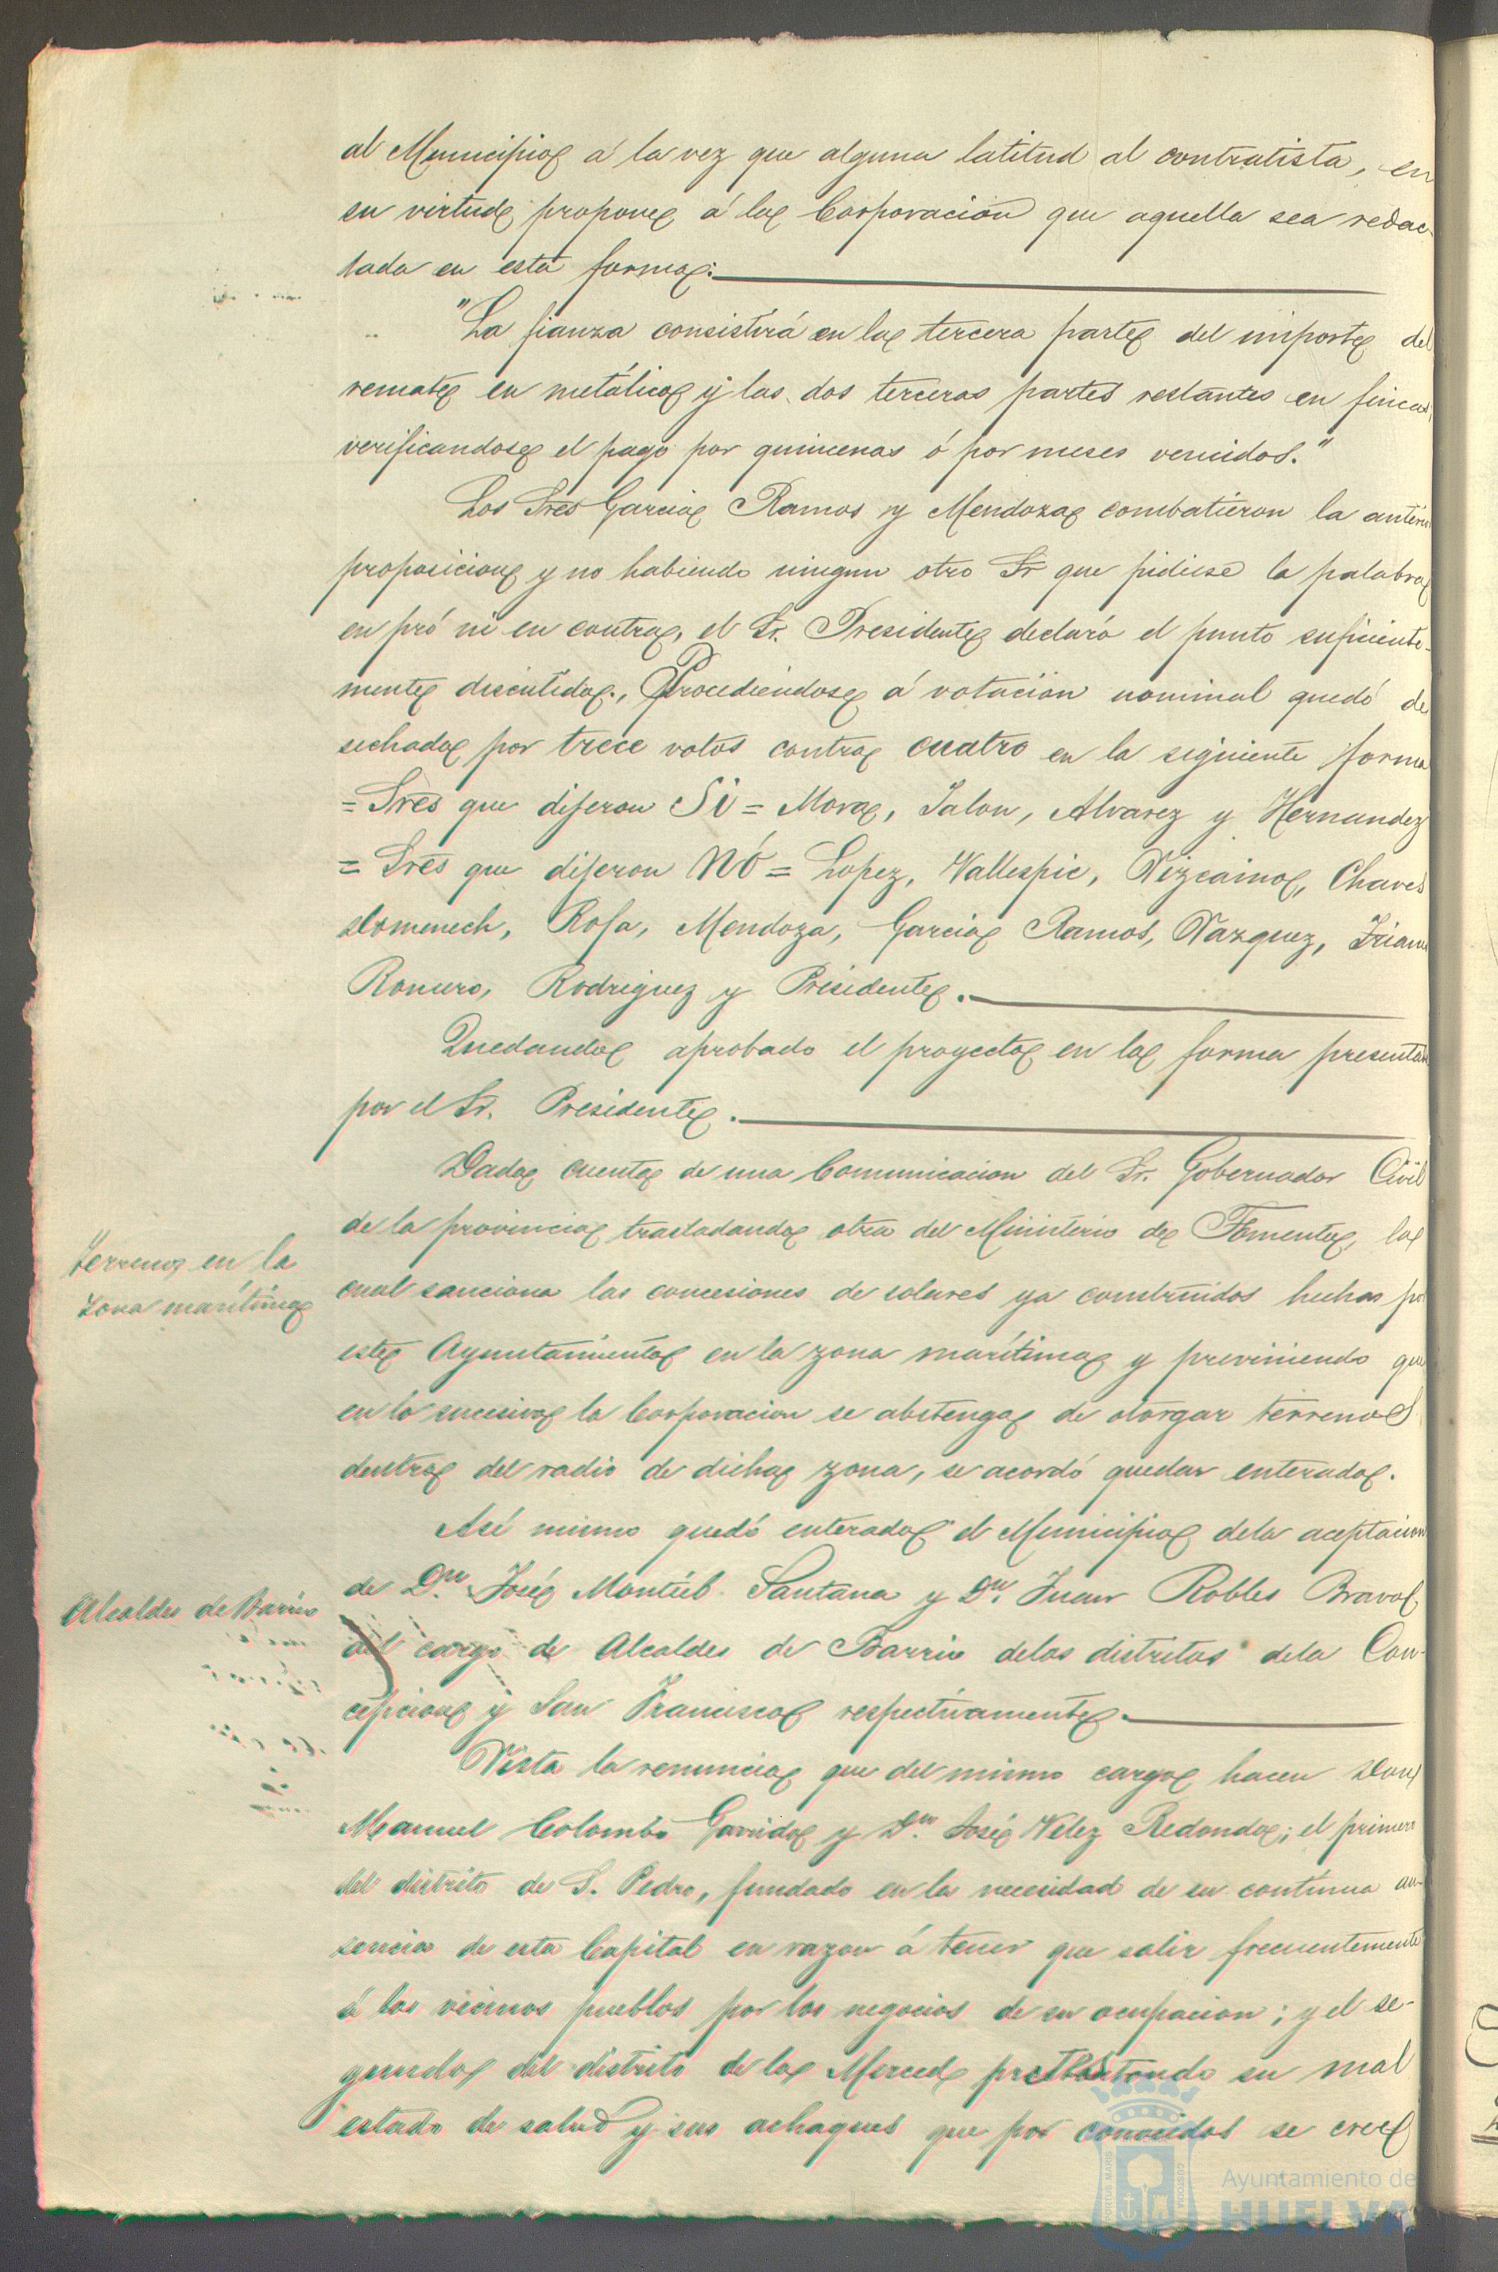 al Municipio á la vez que alguna latitud al contratista, en
su virtud propone á la Corporacion que aquella sea redac-
tada en esta forma:
"La fianza consistirá en la tercera parte del importe del
remate en metálico y las dos terceras partes restantes en fincas,
verificandose el pago por quincenas ó por meses vencidos."
Los Sres Garcia Ramos y Mendoza combatieron la anterior
proposicion y no habiendo ningun otro Sr que pidiese la palabra
en pró ni en contra, el Sr. Presidente declaró el punto suficiente-
mente discutido., Procediéndose á votacion nominal quedó de
sechada por trece votos contra cuatro en la siguiente forma
= Sres que dijeron Si = Mora, Jalon, Alvarez y Hernandez
= Sres que dijeron Nó = Lopez, Vallespic, Vizcaino, Chaves
Domenech, Rofa, Mendoza, Garcia Ramos, Vazquez, Triana
Romero, Rodriguez y Presidente.
Quedando aprobado el proyecto en la forma presentada
por el Sr. Presidente.
Dada cuenta de una Comunicacion del Sr. Gobernador Civil
de la provincia trasladando otra del Ministerio de Fomento, la
Terreno en la
zona marítima
cual sanciona las concesiones de solares ya construidos hechas por
este Ayuntamiento en la zona marítima y previniendo que
en lo sucesivo la Corporacion se abstenga de otorgar terrenos
dentro del radio de dicha zona, se acordó quedar enterado.
Asi mismo quedó enterado el Municipio dela aceptacion
Alcaldes de Barrio
de Dn. José Montiel Santana y Dn. Juan Robles Bravo
del cargo de Alcaldes de Barrio delos distritos dela Con-
cepcion y San Francisco respectivamente.
Vista la renuncia que del mismo cargo hacen Don
Manuel Colombo Garrido y Dn. José Velez Redondo; el primero
del distrito de S. Pedro, fundado en la necesidad de su contínua au-
sencia de esta Capital en razon á tener que salir frecuentemente
á los vicinos pueblos por los negocios de su ocupacion; y el se-
gundo del distrito de la Merced pretestando su mal
estado de salud y sus achaques que por conocidos se cree
Ayuntamiento de
HUELVA